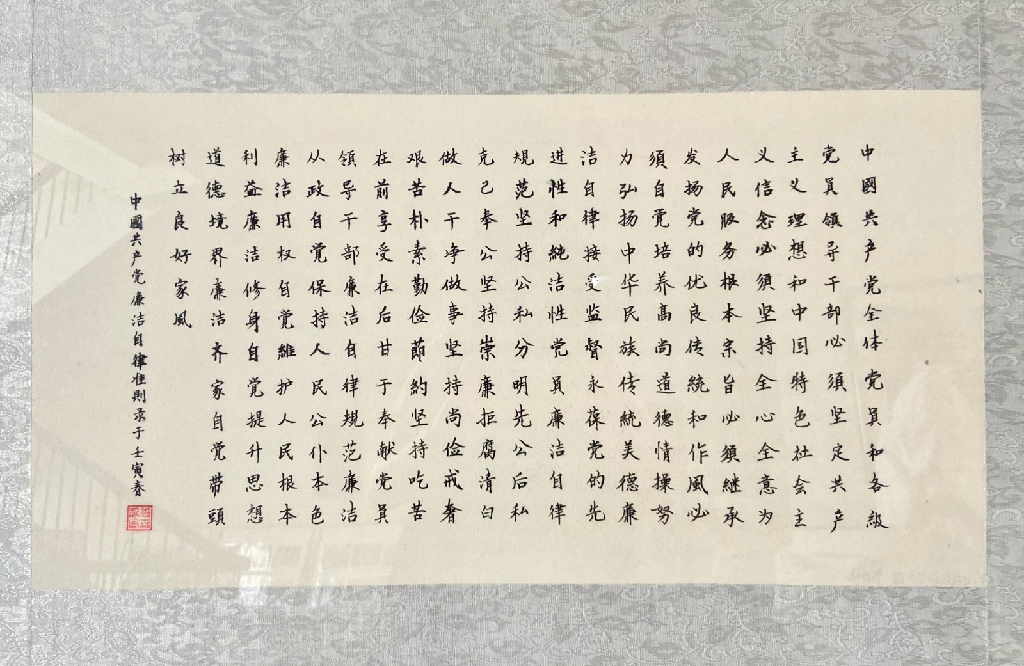 中國共产党全体党員和各級
党員領导干部必須坚定共产
主义理想和中国特色社会主
义信念必須坚持全心全意为
人民服务根本宗旨必須継承
发扬党的优良传統和作風必
須自觉培养高尚道德情操努
力弘扬中华民族传統美德廉
洁自律接受监督永葆党的先
进性和純洁性党員廉洁自律
規范坚持公私分明先公后私
克己奉公坚持崇廉拒腐清白
做人干净做事坚持尚俭戒奢
艰苦朴素勤俭節約坚持吃苦
在前享受在后甘于奉献党員
領导干部廉洁自律規范廉洁
从政自覚保持人民公仆本色
廉洁用权自覚維护人民根本
利益廉洁修身自覚提升思想
道德境界廉洁齐家自覚带頭
树立良好家風
中國共产党廉洁自律准則录于壬寅春